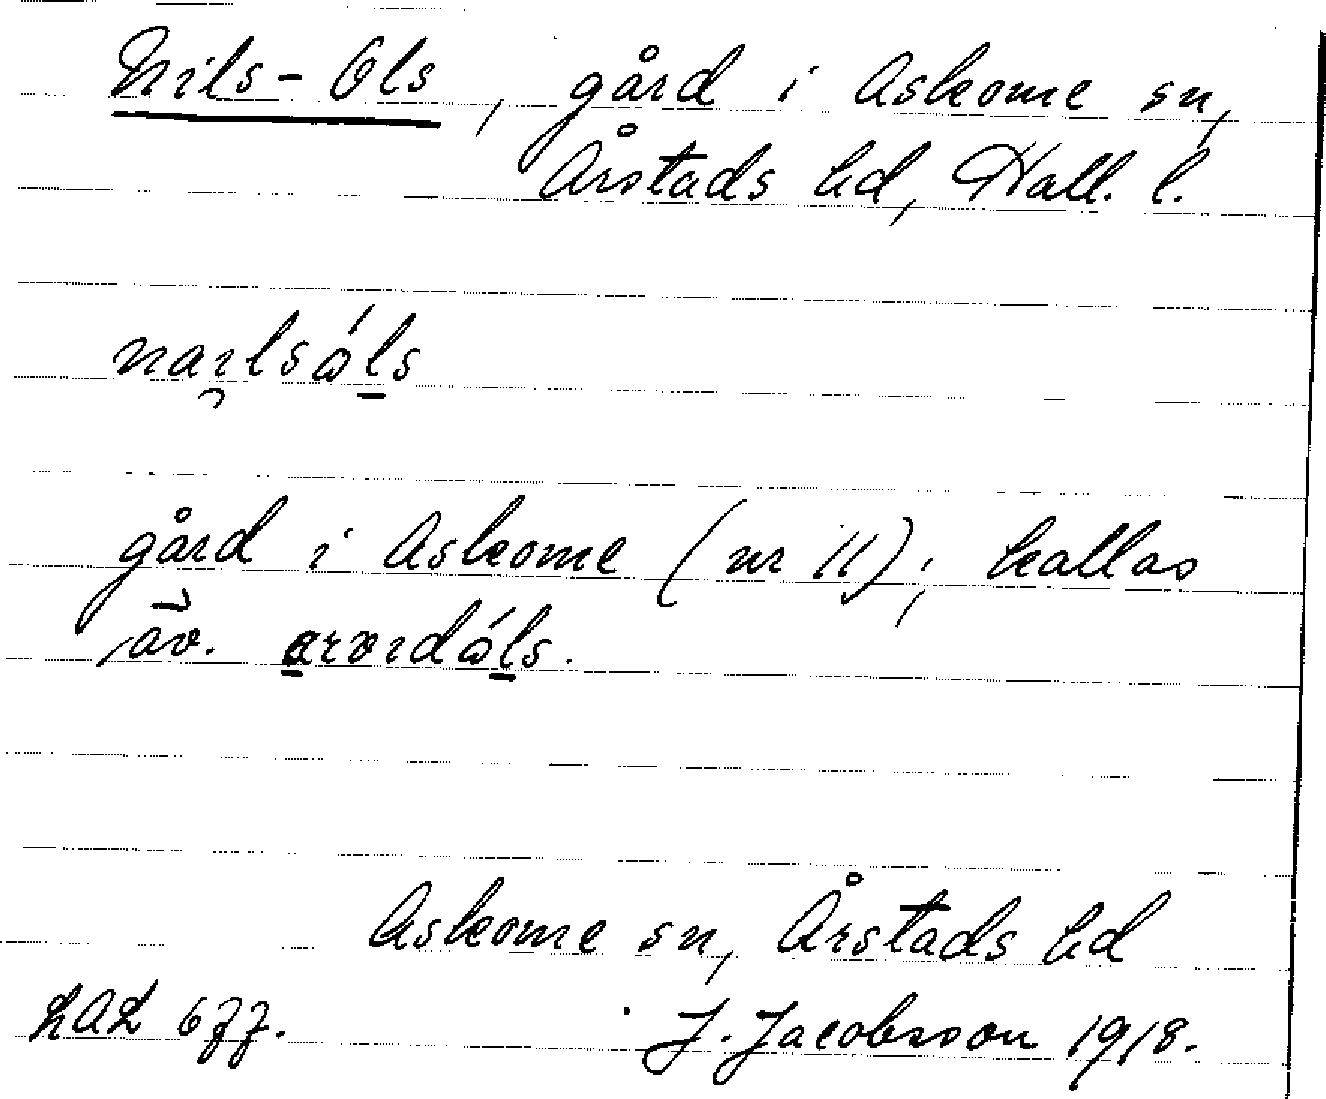 Nils-Ols, gård i Askome sn,
Årstads hd, Hall. l.
naı̯lsɷ́l̠s
gård i Askome (nr 11); kallas
äv. a̠rvıdɷ́l̠s.
Askome sn, Årstads hd
LAL 677. J. Jacobsson 1918.